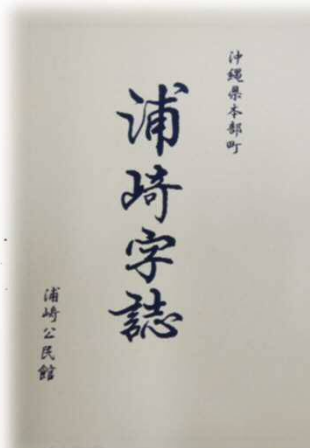 沖縄県本部町
浦崎字誌
浦崎公民館